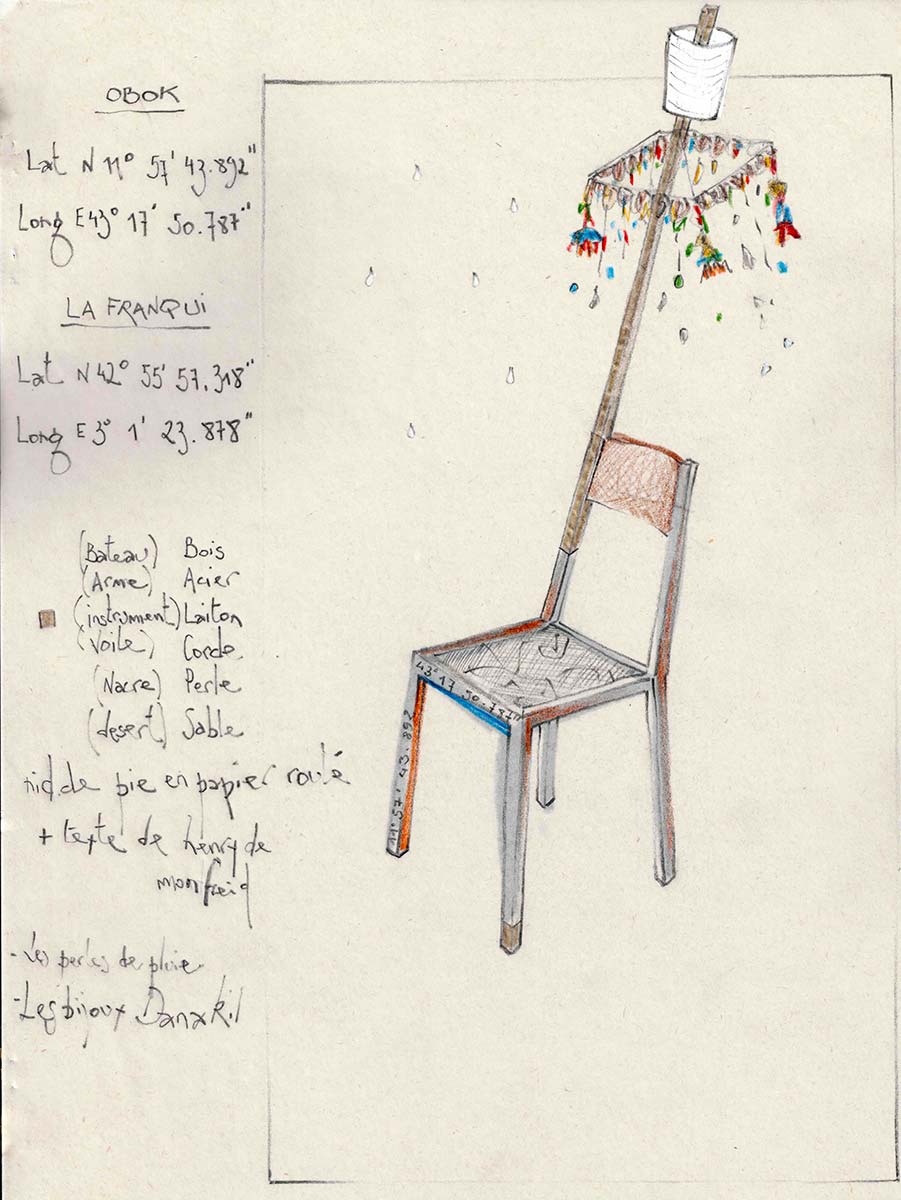 OBOK
Lat N 11° 57' 43.892"
Long E 43° 17' 50.787"
LA FRANQUI
Lat N 42° 55' 57.318"
Long E 3° 1' 23.878"
(Bateau) Bois
(Arme) Acier
(instrument) Laiton
(Voile) Corde
(Nacre) Perle
(desert) Sable
nid de pie en papier roulé
+ texte de henry de
monfreid
- Les perles de pluie
- Les bijoux Danakil
43° 17 50.787"
11° 57' 43.892